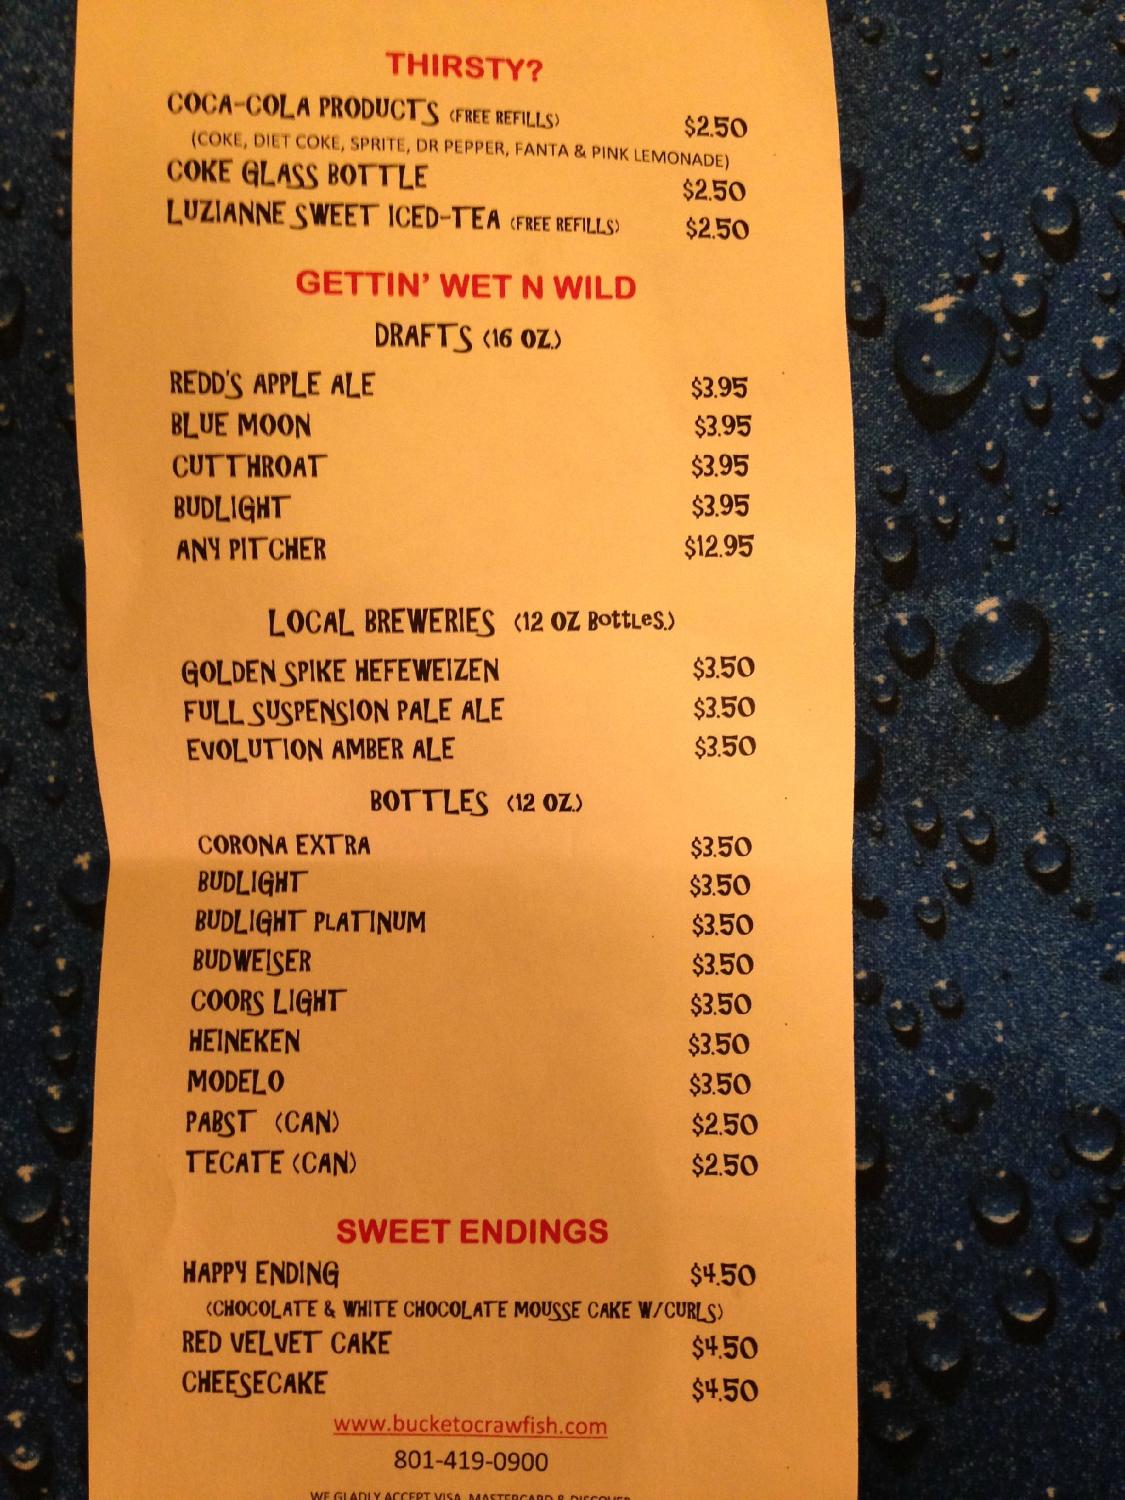 THIRSTY?
COCA-COLA PRODUCTS (FREE REFILLS) $2.50
(COKE, DIET COKE, SPRITE, DR PEPPER, FANTA & PINK LEMONADE)
COKE GLASS BOTTLE $2.50
LUZIANNE SWEET ICED-TEA (FREE REFILLS) $2.50
GETTIN' WET N WILD
DRAFTS (16 OZ.)
REDD'S APPLE ALE $3.95
BLUE MOON $3.95
CUTTHROAT $3.95
BUDLIGHT $3.95
ANY PITCHER $12.95
LOCAL BREWERIES (12 OZ BottLeS.)
GOLDEN SPIKE HEFEWEIZEN $3.50
FULL SUSPENSION PALE ALE $3.50
EVOLUTION AMBER ALE $3.50
BOTTLES (12 OZ.)
CORONA EXTRA $3.50
BUDLIGHT $3.50
BUDLIGHT PLATINUM $3.50
BUDWEISER $3.50
COORS LIGHT $3.50
HEINEKEN $3.50
MODELO $3.50
PABST (CAN) $2.50
TECATE (CAN) $2.50
SWEET ENDINGS
HAPPY ENDING $4.50
(CHOCOLATE & WHITE CHOCOLATE MOUSSE CAKE W/CURLS)
RED VELVET CAKE $4.50
CHEESECAKE $4.50
www.bucketocrawfish.com
801-419-0900
WE GLADLY ACCEPT VISA, MASTERCARD & DISCOVER